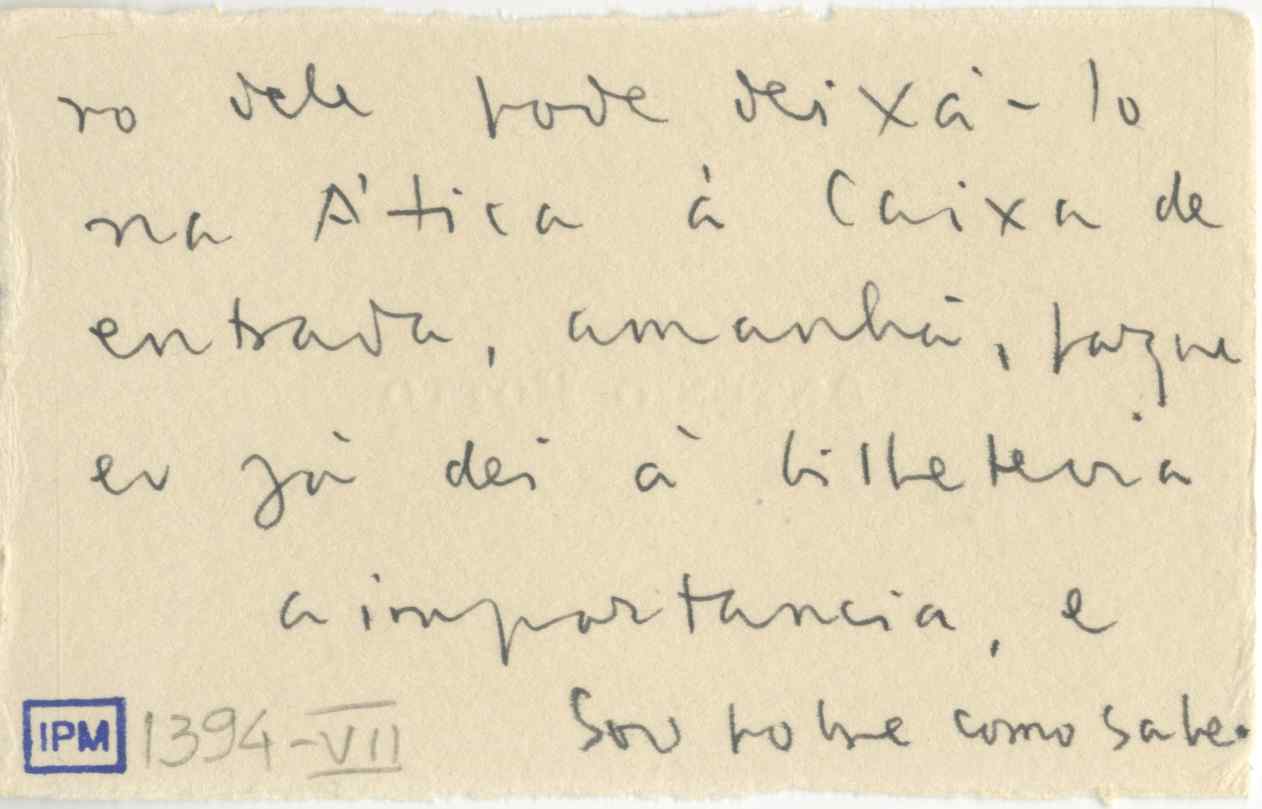 ro dele pode deixá-lo
na Ática à Caixa de
entrada, amanhã, porque
eu já dei à bilheteria
a importancia, e
Sou pobre como sabe.
IPM 1394-VII